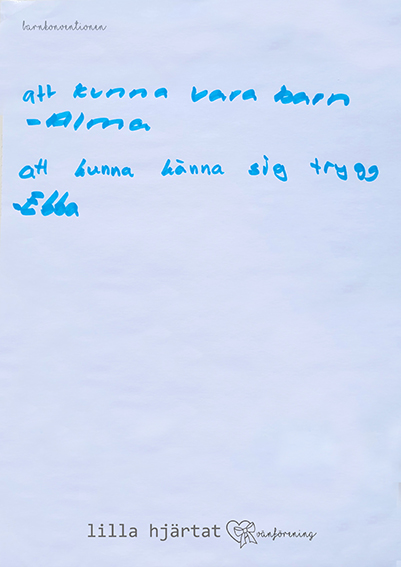 barnkonventionen
att kunna vara barn
-Alma
att kunna känna sig trygg
-Ebba
lilla hjärtat vänförening